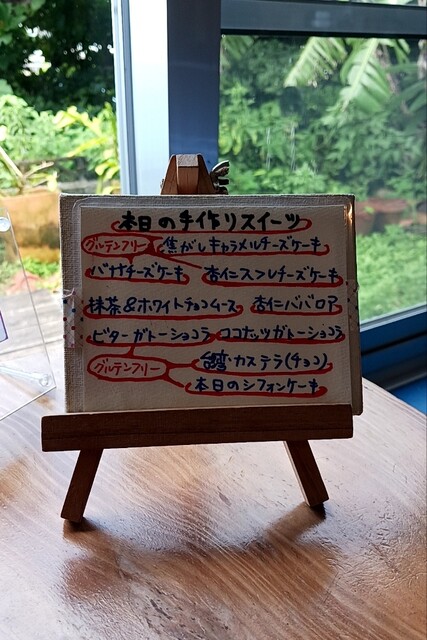 本日の手作りスイーツ
グルテンフリー 焦がしキャラメルチーズケーキ
バナナチーズケーキ 杏仁スフレチーズケーキ
抹茶&ホワイトチョコムース 杏仁ババロア
ビターガトーショコラ ココナッツガトーショコラ
グルテンフリー 台湾カステラ(チョコ)
本日のシフォンケーキ